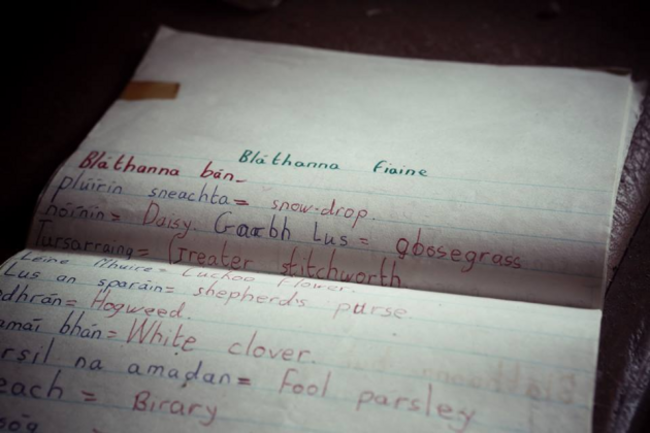 Bláthanna Fiaine
Bláthanna bán_
plúirín sneachta = snow-drop.
nóinín = Daisy. Garbh Lus = goosegrass
Tursarraing = Greater stitchworth.
Léine Mhuire = Cuckoo Flower.
Lus an sparáin = shepherd's purse
adhrán = Hogweed.
amaí bhán = White clover.
rsil na amadan = Fool parsley
each = Birary